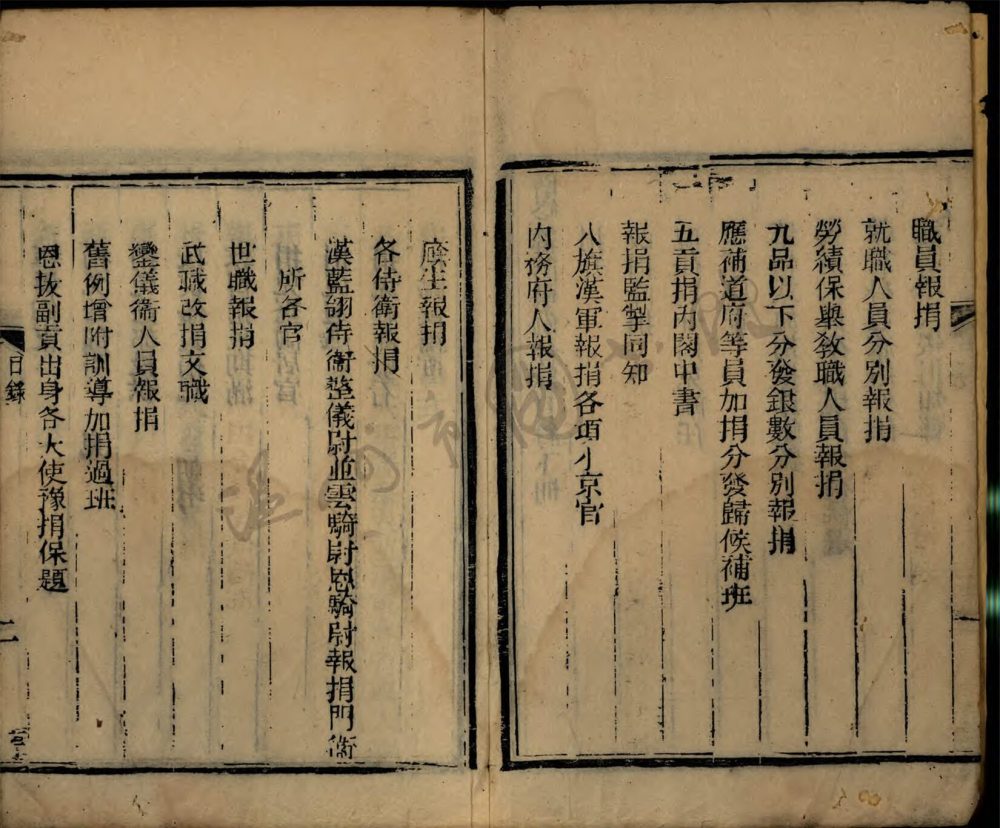 職員報捐
就職人員分別報捐
勞績保舉教職人員報捐
九品以下分發銀數分別報捐
應補道府等員加捐分發歸候補班
五貢捐內閣中書
報捐監掣同知
八旗漢軍報捐各項小京官
內務府人報捐
廕生報捐
各侍衛報捐
漢藍翎侍衛整儀尉並雲騎尉恩騎尉報捐門衛
所各官
世職報捐
武職改捐文職
鑾儀衛人員報捐
舊例增附訓導加捐過班
恩拔副貢出身各大使豫捐保題
目錄
二